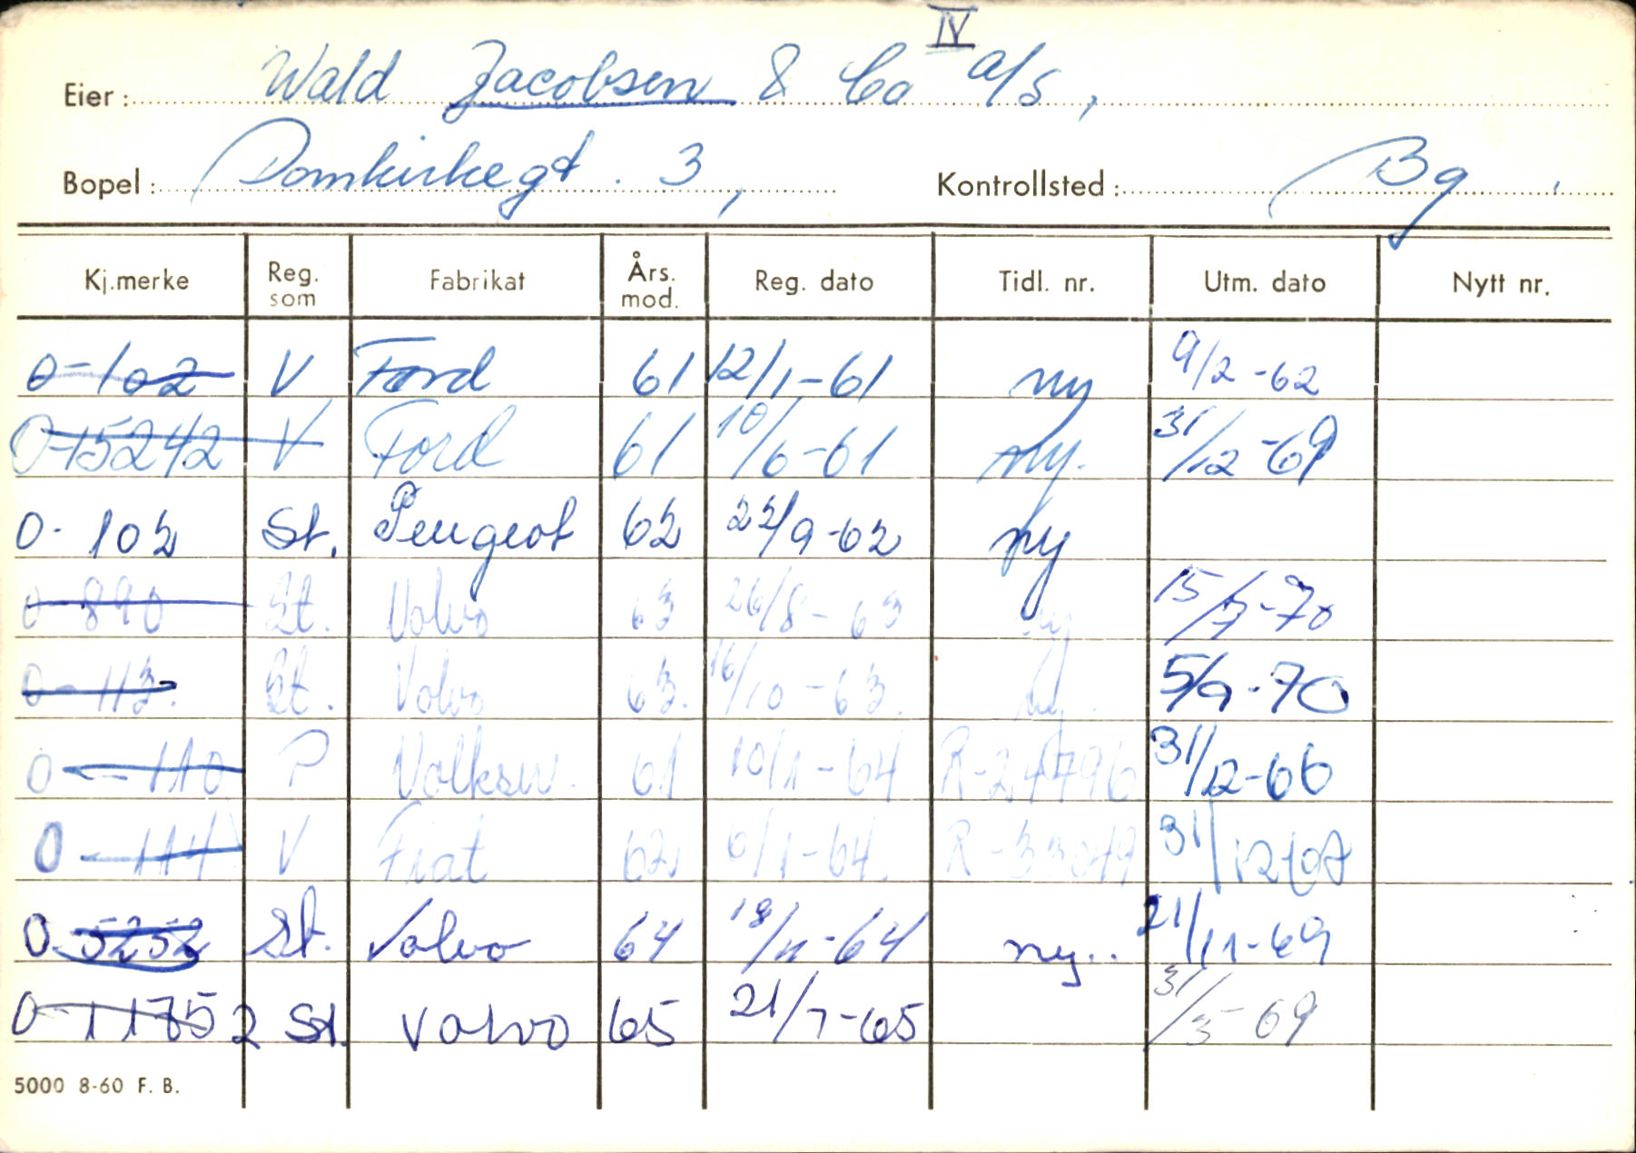 IV
Eier: Wald Jacobsen & Co a/s,
Bopel: Domkirkegt. 3, Kontrollsted: Bg.
Kj.merke Reg. som Fabrikat Års. mod. Reg. dato Tidl. nr. Utm. dato Nytt nr.
O-102 V Ford 61 12/1-61 ny 9/2-62
O-15242 V Ford 61 10/6-61 ny. 31/12-69
O-102 St. Peugeot 62 22/9-62 ny
O-890 St. Volvo 63 26/8-63 ny 15/7-70
O-113. St. Volvo 63. 16/10-63. ny. 5/9-70
O-110 P Volksw. 61 10/1-64 R-24796 31/12-66
O-114 V Fiat 62 6/1-64. 31/12-67
O-5252 St. Volvo 64 18/11-64 ny.. 21/11-69
O-11752 St. Volvo 65 21/7-65 31/3-69
5000 8-60 F. B.